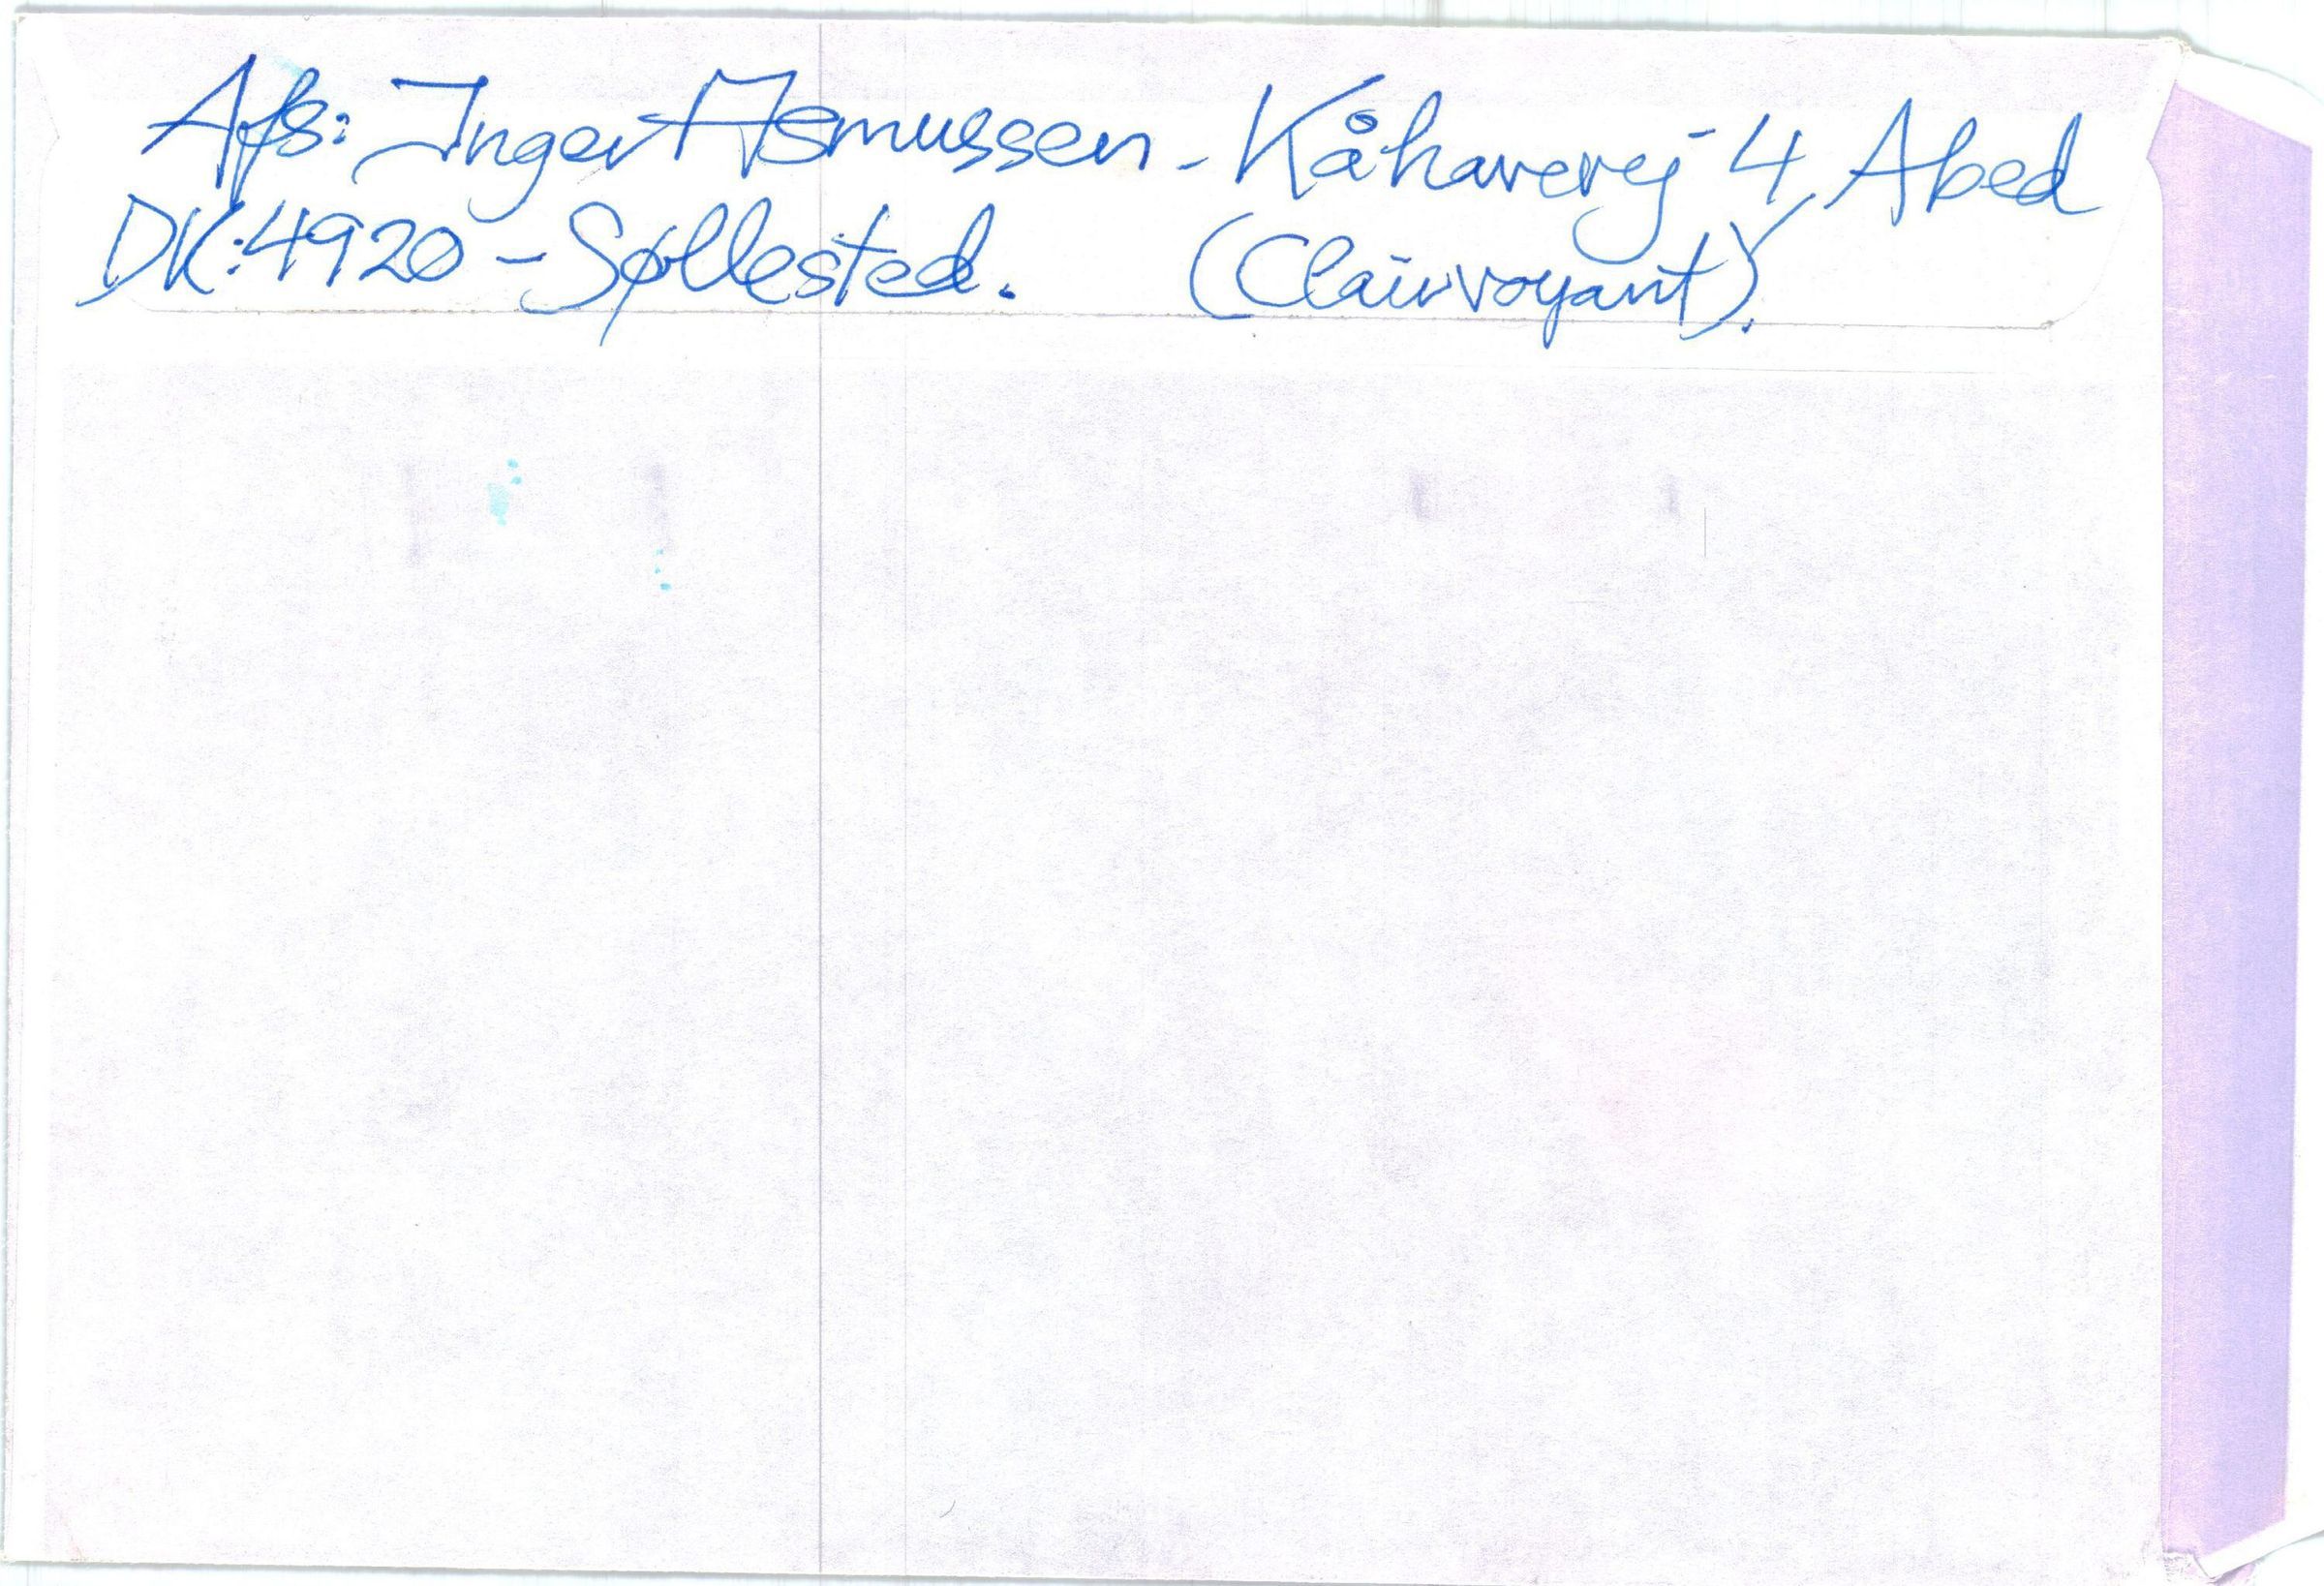 Afs: Inger Asmussen - Kåhavevej 4, Abed
DK:4920 - Søllested. (Clairvoyant).